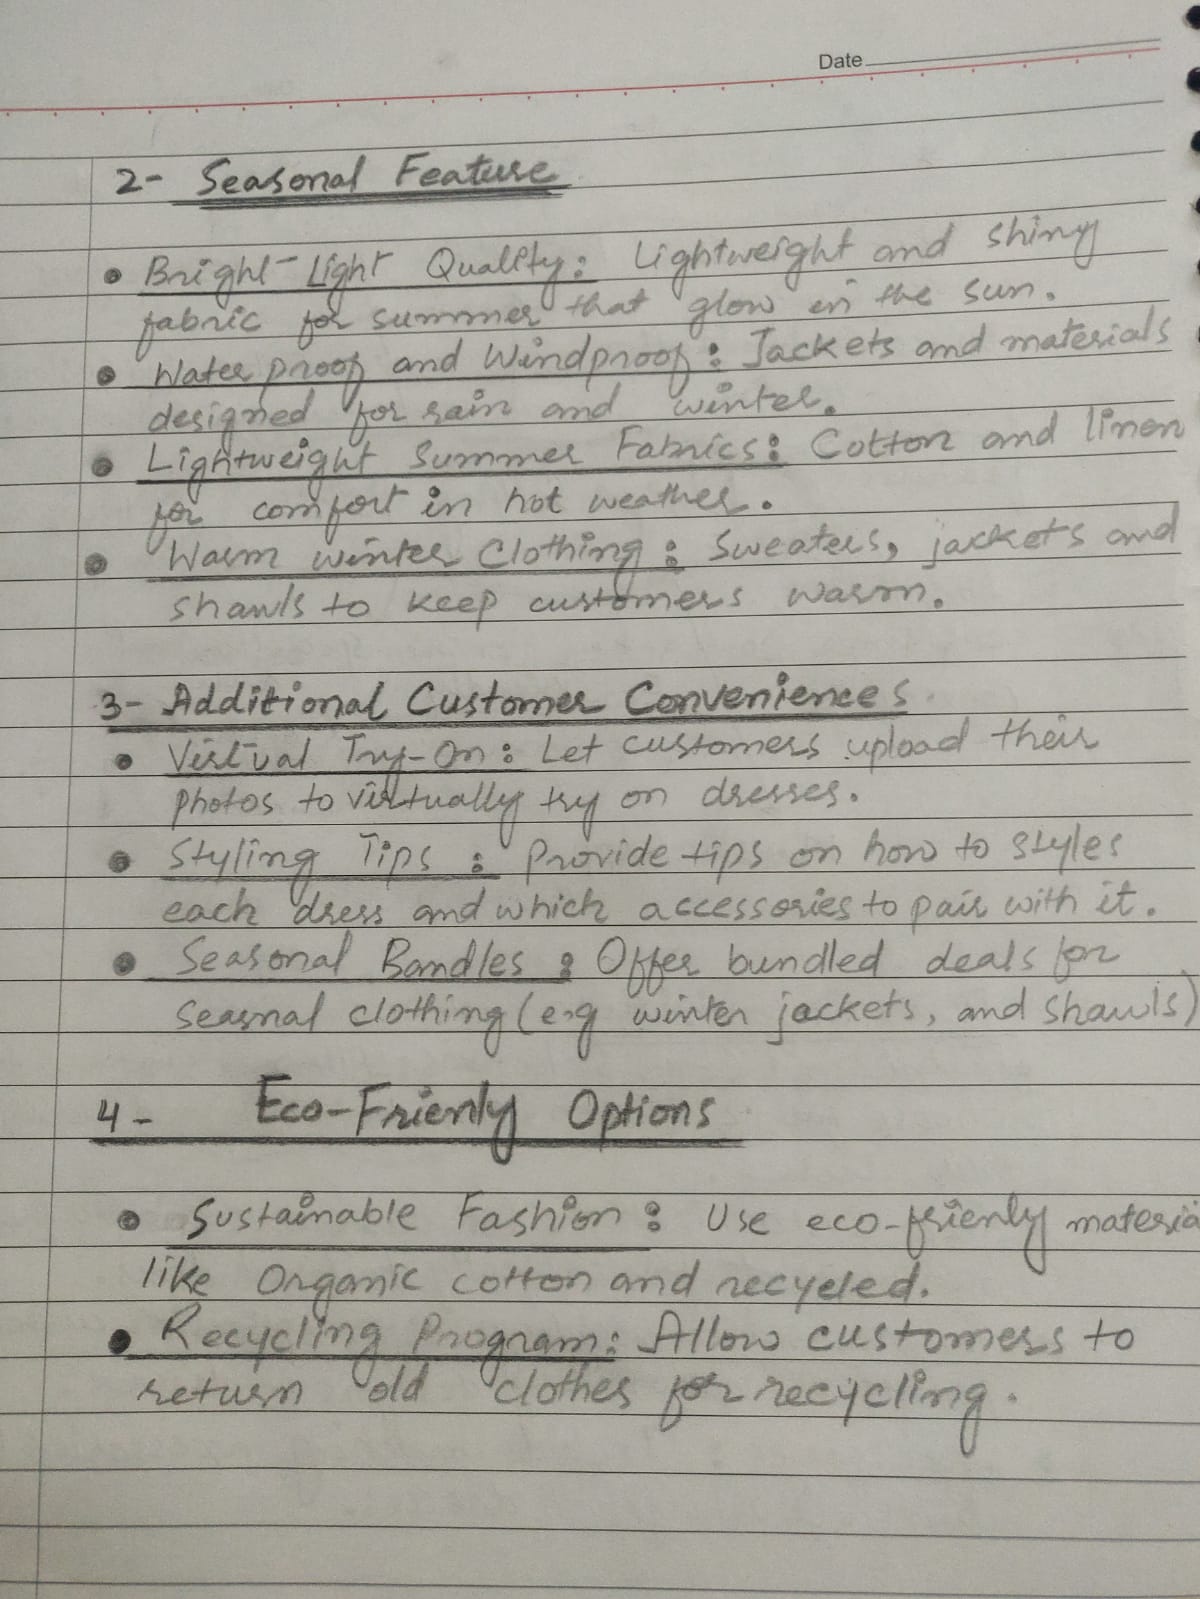 Date
2- Seasonal Feature
• Bright-Light Quality: Lightweight and shiny
fabric for summer that glow in the sun.
• Waterproof and Windproof: Jackets and materials
designed for rain and winter.
• Lightweight Summer Fabrics: Cotton and linen
for comfort in hot weather.
• Warm winter Clothing: Sweaters, jackets and
shawls to keep customers warm.
3- Additional Customer Conveniences
• Virtual Try-On: Let customers upload their
photos to virtually try on dresses.
• Styling Tips: Provide tips on how to styles
each dress and which accessories to pair with it.
• Seasonal Bandles: Offer bundled deals for
Seasnal clothing (e.g winter jackets, and shawls)
4- Eco-Frienly Options
• Sustainable Fashion: Use eco-frienly materia
like Organic cotton and recycled.
• Recycling Program: Allow customers to
return old clothes for recycling.